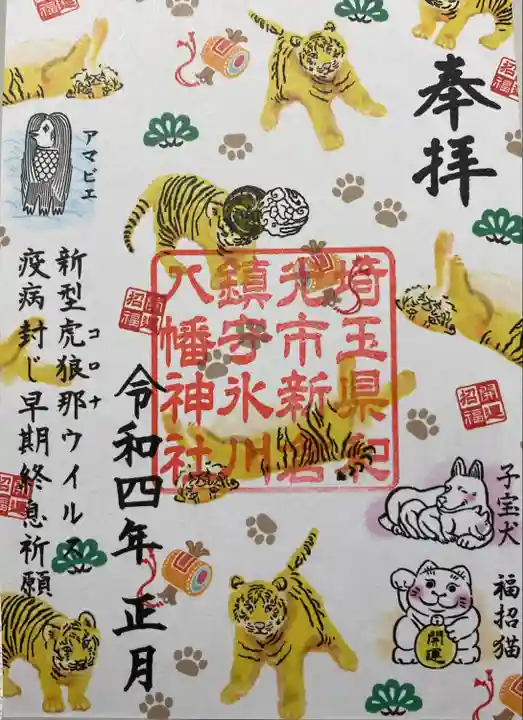 奉拝
埼玉県和
光市新倉
鎮守氷川
八幡神社
令和四年正月
アマビエ
新型虎狼那ウイルス
コロナ
疫病封じ早期終息祈願
子宝犬
福招猫
開運
招福
招福
招福
招福